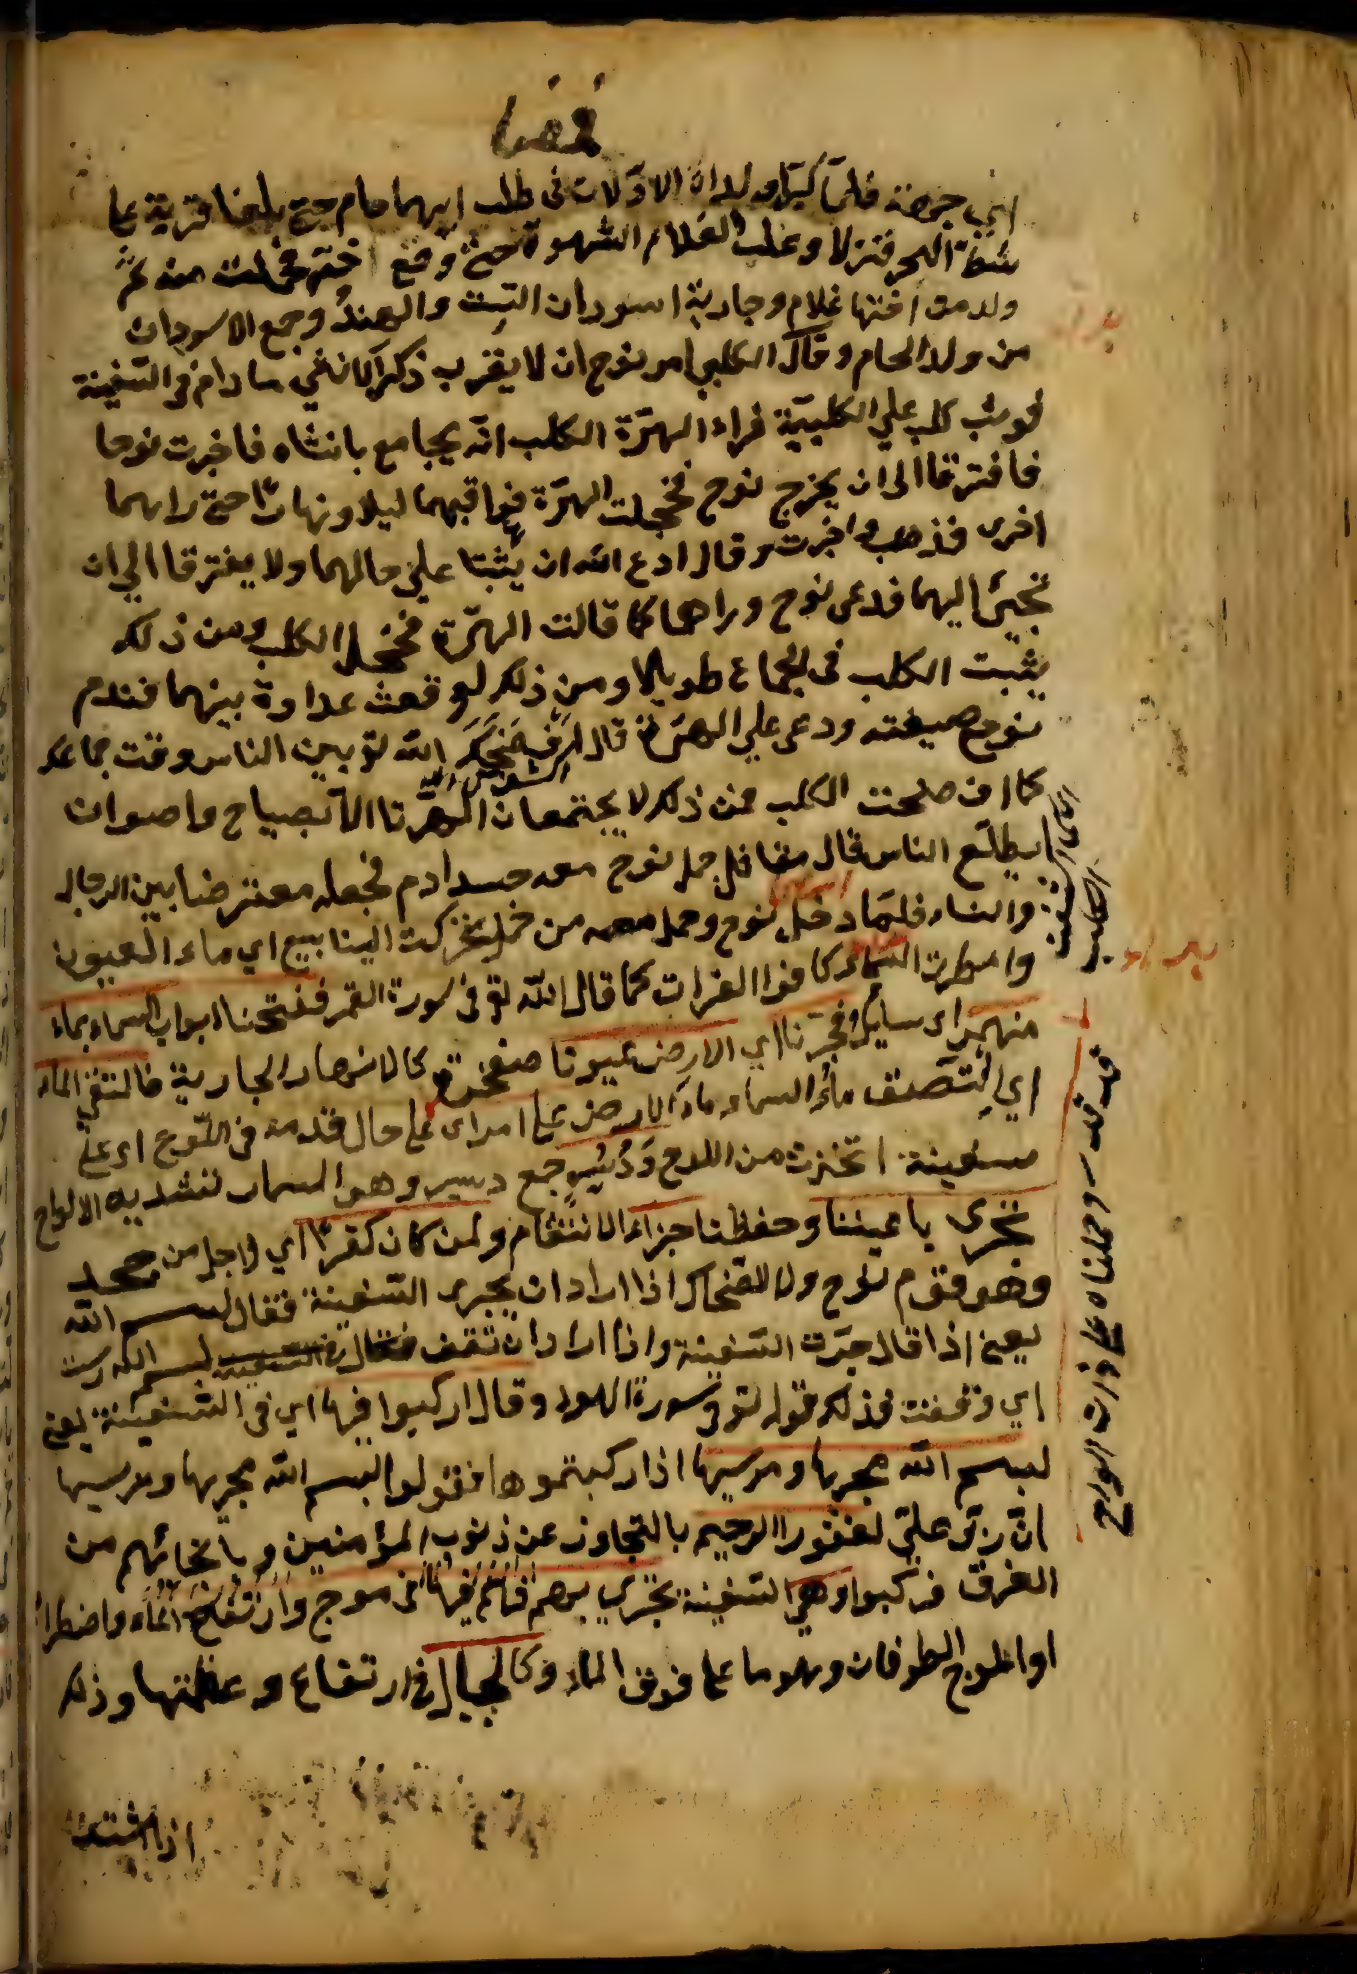 فلما كبرا ولداه الاولات في طلب ابيهما حام حتي بلغا قرية علي
شط البحر فنزلا وغلب الغلام الشهوة حتي وقع اخته فحملت منه ثم
ولدت اختها غلام وجارية اسودان التبت والهند وجمع الاسودان
من ولد الحام وقال الكلبي امر نوح ان لا يقرب ذكر الانثي ما دام في السفينة
فوثب كلب علي الكلبية فراء الهرة الكلب انه يجامع بانثاه فاخبرت نوحا
فافترقا الي ان يخرج نوح فخجلت الهرة فراقبهما ليلا ونهارا حتي راهما
اخري فذهب واخبرت وقال ادع الله ان يثبتا علي حالهما ولا يفترقا الي ان
نجيئ اليهما فدعي نوح وراهما كما قالت الهرة فخجل الكلب ومن ذلك
يثبت الكلب في الجماع طويلا ومن ذلك لو قعت عداوة بينهما فندم
نوح صيغته ودعي علي الهرة قال الله تع بين الناس وقت جماعك
كما افضحت الكلب فمن ذلك لا يجتمعان الهرتا الا بصياح واصوات
ليطلع الناس قال مقاتل حمل نوح معه جسد ادم فجعله معترضا بين الرجال
والنساء فلما دخل نوح وحمل معه من حمل تحركت الينابيع اي ماء العيون
وامطرت السماء كافوا القرات كما قال الله تع في سورة القمر ففتحنا ابواب السماء بماء
منهمر اي سايل وفجرنا اي الارض عيونا منفجرة كالانهار الجارية فالتقي الماء
اي التصق ماء السماء وماء الارض علي امر اي علي حال قد مه في اللوح اي علي
سفينة اتخزت من اللوح ودسر جمع دسير وهو المسمار تنشد به الالواح
تجري باعيننا وحفظنا جزاء الانتقام ولمن كان كفرا اي لاجل من جحد
وهو قوم نوح وا الضحاك اذا اراد ان يجري السفينة فقال بسم الله
يعني اذا قال جرت السفينة واذا اراد ان تقف فقال السفينة بسم الله رست
اي وقفت فذلك قوله تع في سورة الهود وقال اركبوا فيها اي في السفينة يعني
بسم الله مجريها ومرسيها اذا ركبتموها فقولوا بسم الله مجريها ومرسيها
ان ربي علي لغفورا الرحيم بالتجاوز عن ذنوب المؤمنين وبانجائهم من
الغرق فركبوا وهي السفينة تجري بهم في موج وارتفاع الماء واضطرا
اوالموج الطوفان وهو ما علي فوق الماء وكالجبال في ارتفاع وعظمتها وذلك
اذا اشتد
اي في السفينة
قد قدر وحملناه علي ذات الواح